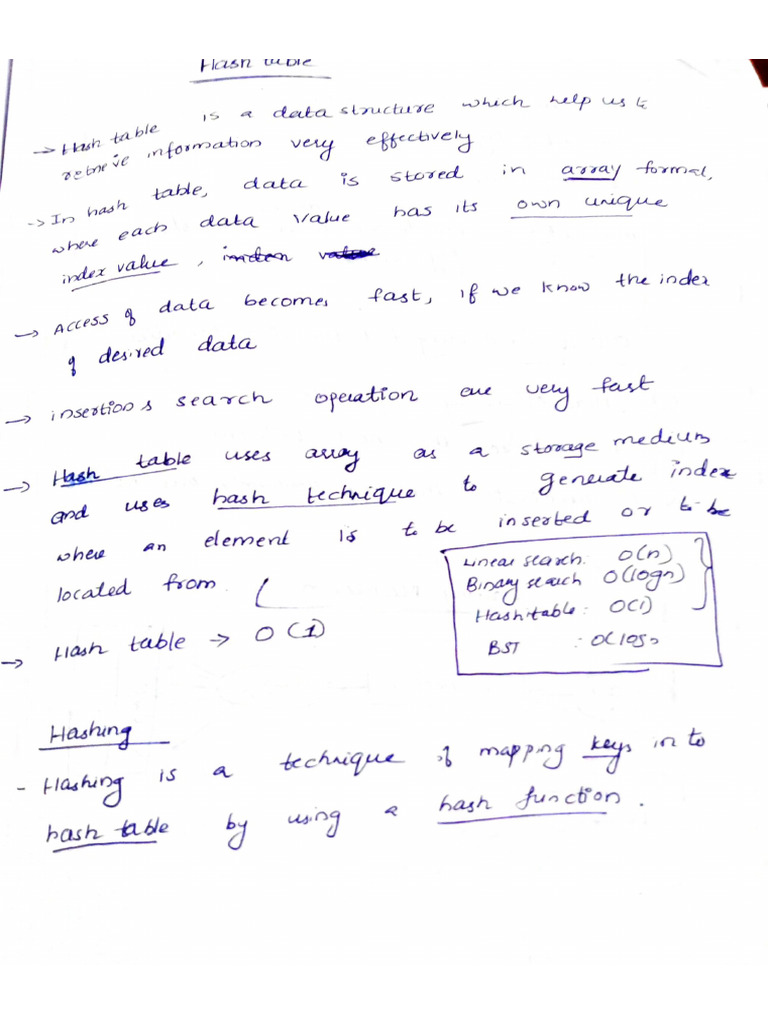 Hash table
→ Hash table is a data structure which help us to
retrieve information very effectively
→ In hash table, data is stored in array format,
where each data value has its own unique
index value,
→ Access of data becomes fast, if we know the index
of desired data
→ insertion & search operation are very fast
→ Hash table uses array as a storage medium
and uses hash technique to generate index
where an element is to be inserted or to be
located from.
Linear search: O(n)
Binary search O(logn)
Hash table: O(1)
BST : O(logn
→ Hash table → O(1)
Hashing
- Hashing is a technique of mapping keys in to
hash table by using a hash function.